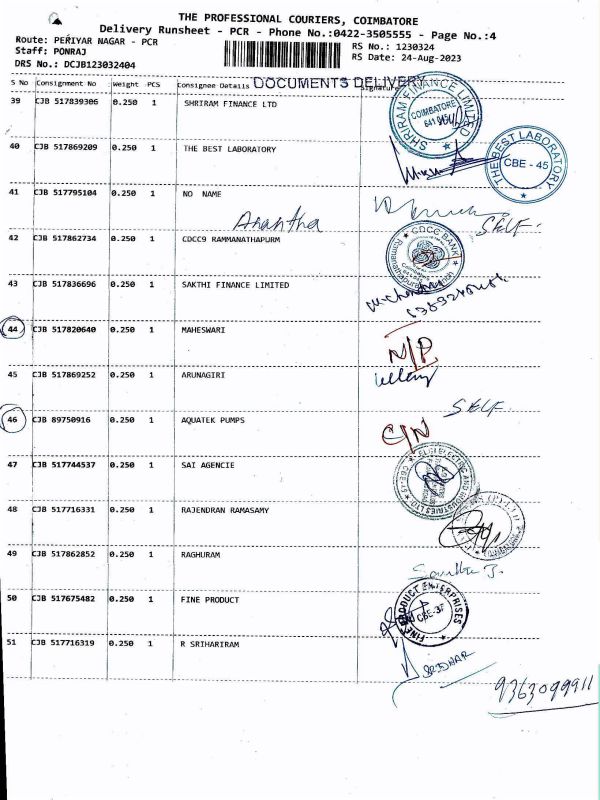 THE PROFESSIONAL COURIERS, COIMBATORE
Delivery Runsheet - PCR - Phone No.:0422-3505555 - Page No.:4
Route: PERIYAR NAGAR - PCR
RS No.: 1230324
Staff: PONRAJ
RS Date: 24-Aug-2023
DRS No.: DCJB123032404
DOCUMENTS DELIVERY
S No Consignment No Weight PCS Consignee Details Signature
39 CJB 517839306 0.250 1 SHRIRAM FINANCE LTD
SHRIRAM FINANCE LIMITED COIMBATORE
40 CJB 517869209 0.250 1 THE BEST LABORATORY
THE BEST LABORATORY CBE - 45
41 CJB 517795104 0.250 1 NO NAME
Anantha
SELF.
42 CJB 517862734 0.250 1 CDCC9 RAMMANATHAPURM
CDCC BANK
43 CJB 517836696 0.250 1 SAKTHI FINANCE LIMITED
44 CJB 517820640 0.250 1 MAHESWARI
N/P
45 CJB 517869252 0.250 1 ARUNAGIRI
SELF.
46 CJB 89750916 0.250 1 AQUATEK PUMPS
C/N
47 CJB 517744537 0.250 1 SAI AGENCIE
48 CJB 517716331 0.250 1 RAJENDRAN RAMASAMY
49 CJB 517862852 0.250 1 RAGHURAM
50 CJB 517675482 0.250 1 FINE PRODUCT
FINE PRODUCT ENTERPRISES
51 CJB 517716319 0.250 1 R SRIHARIRAM
SRIDHAR
9363099911